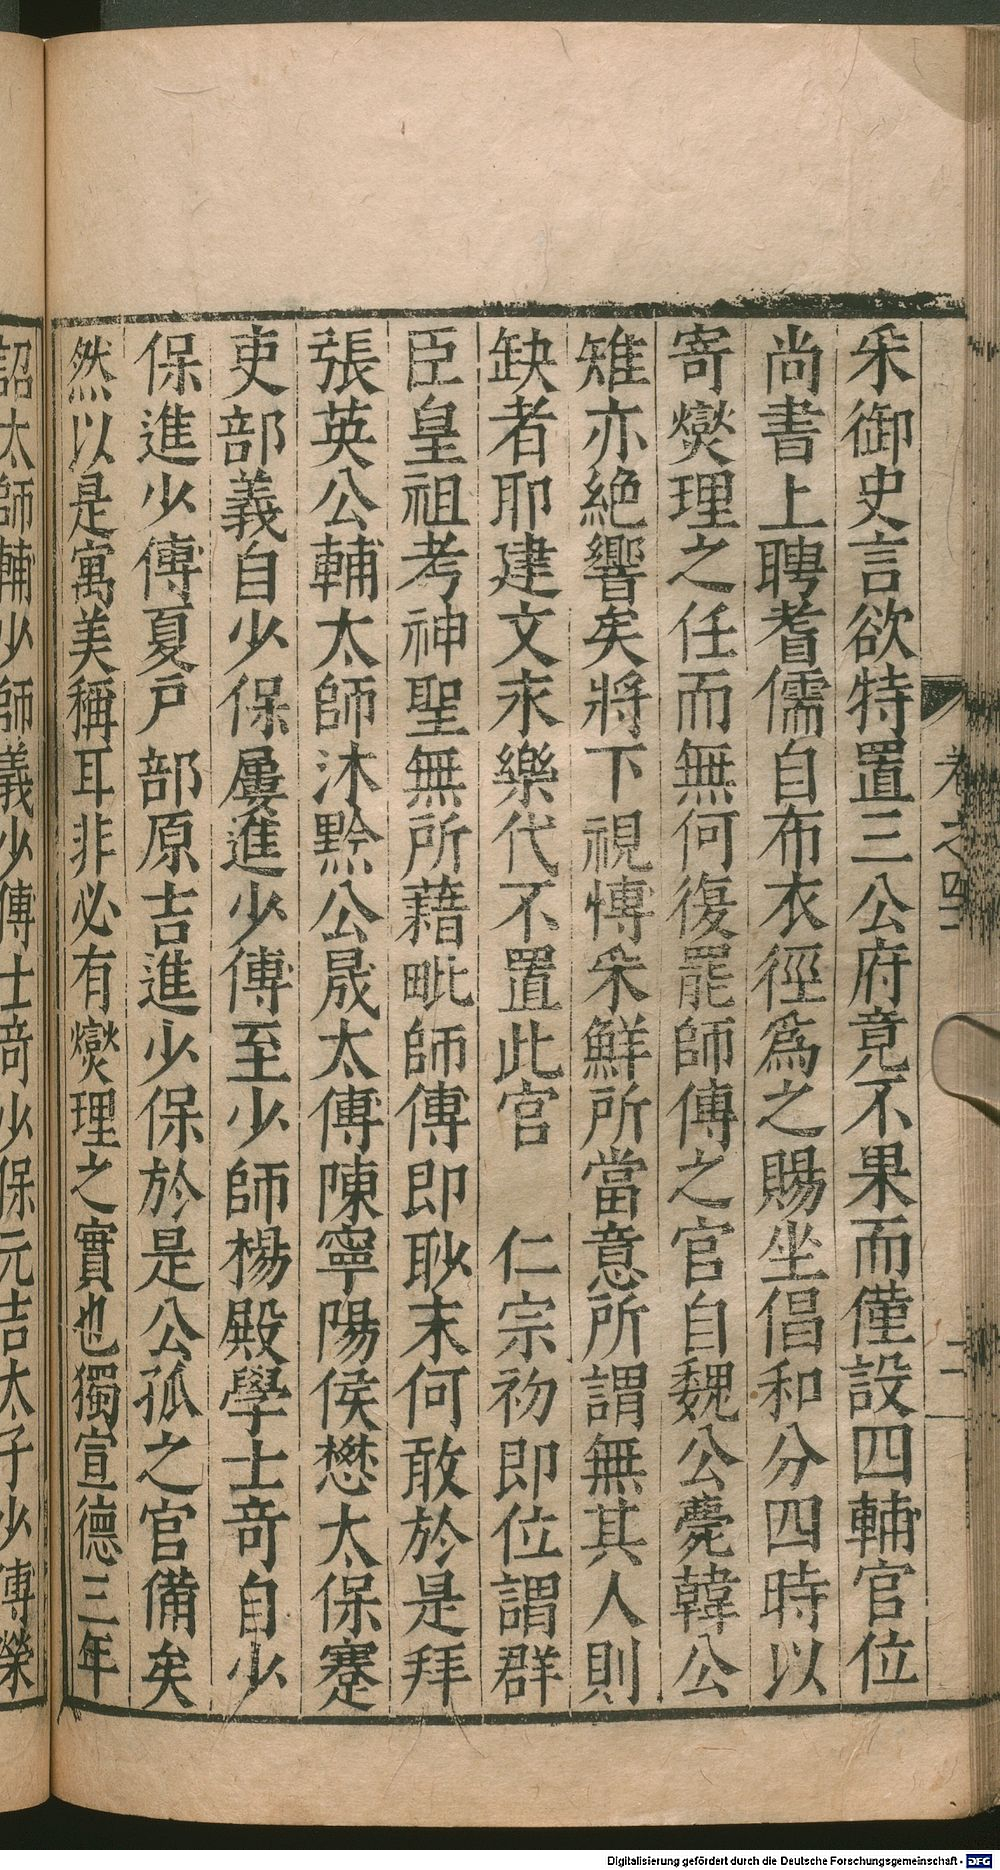 卷之四
二
采御史言欲特置三公府竟不果而僅設四輔官位
尚書上聘耆儒自布衣徑爲之賜坐倡和分四時以
寄燮理之任而無何復罷師傅之官自魏公薨韓公
雉亦絕響矣將下視慱采鮮所當意所謂無其人則
缺者耶建文永樂代不置此官 仁宗初即位謂群
臣皇祖考神聖無所藉毗師傅即耿末何敢於是拜
張英公輔太師沐黔公晟太傅陳寧陽侯懋太保蹇
吏部義自少保屢進少傅至少師楊殿學士竒自少
保進少傅夏戶部原吉進少保於是公孤之官備矣
然以是寓美稱耳非必有燮理之實也獨宣德三年
詔太師輔少師義少傅士竒少保元吉太子少傅榮
Digitalisierung gefördert durch die Deutsche Forschungsgemeinschaft - DFG